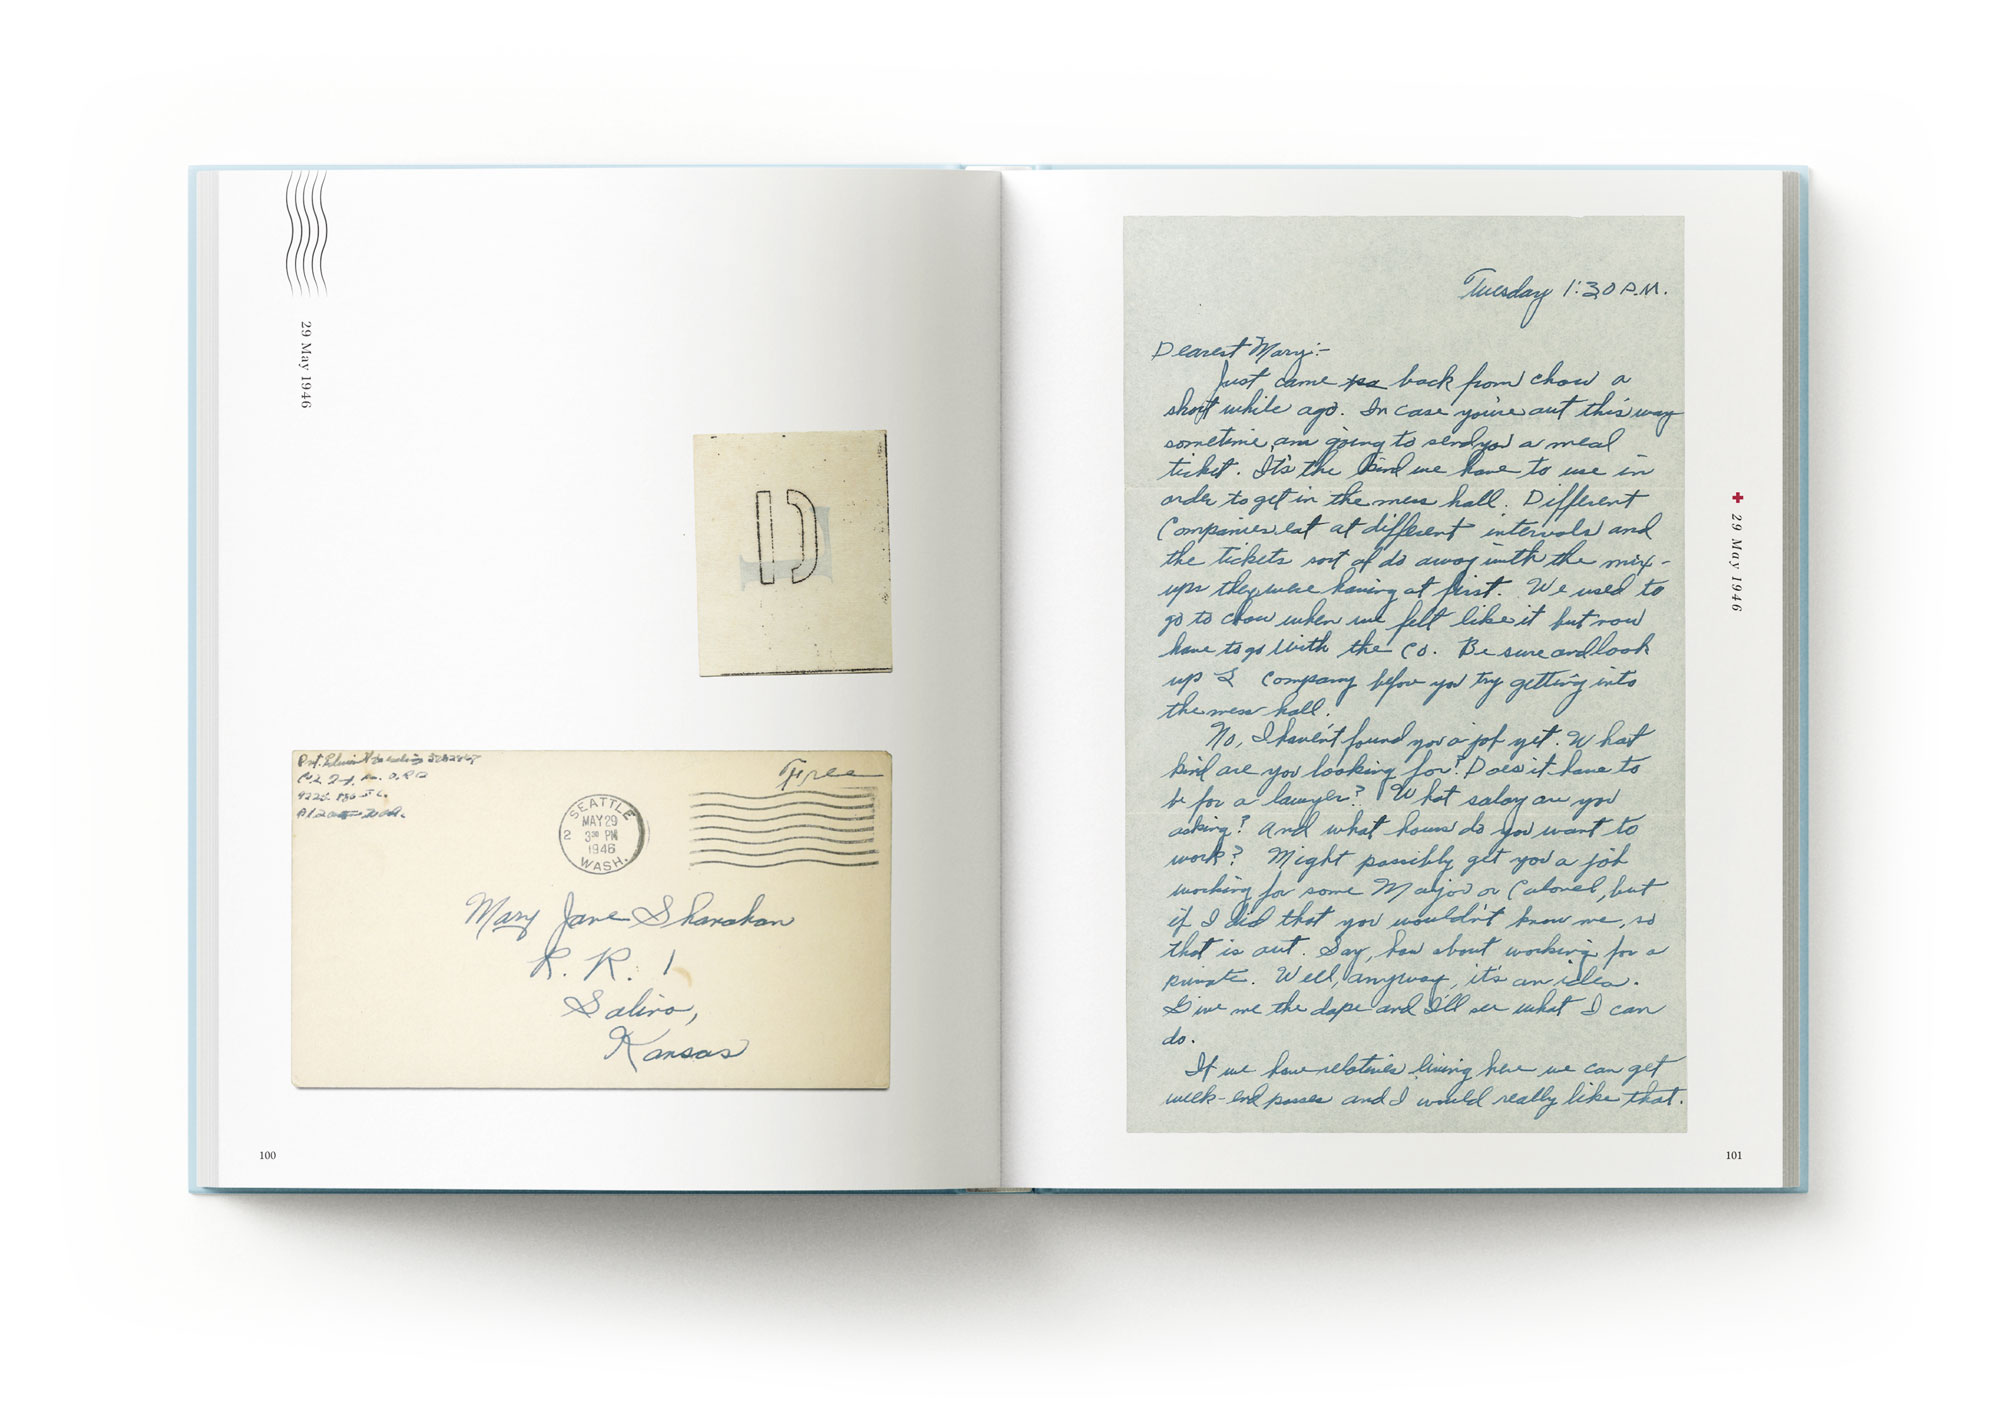 29 May 1946
D
L
Pvt. Edwin
Free
SEATTLE
2
MAY 29
3 30 PM
1946
WASH.
Mary Jane Shanahan
R. R. 1
Salina,
Kansas
100
Tuesday 1:30 P.M.
Dearest Mary:-
Just came back from chow a
short while ago. In case you're out this way
sometime, am going to send you a meal
ticket. It's the kind we have to use in
order to get in the mess hall. Different
Companies eat at different intervals and
the tickets sort of do away with the mix-
ups they were having at first. We used to
go to chow when we felt like it but now
have to go with the Co. Be sure and look
up L Company before you try getting into
the mess hall.
No, I haven't found you a job yet. What
kind are you looking for? Does it have to
be for a lawyer? What salary are you
asking? And what hours do you want to
work? Might possibly get you a job
working for some Major or Colonel, but
if I did that you wouldn't know me, so
that is out. Say, how about working for a
private. Well, anyway, it's an idea.
Give me the dope and I'll see what I can
do.
If we have relatives living here we can get
week-end passes and I would really like that.
29 May 1946
101